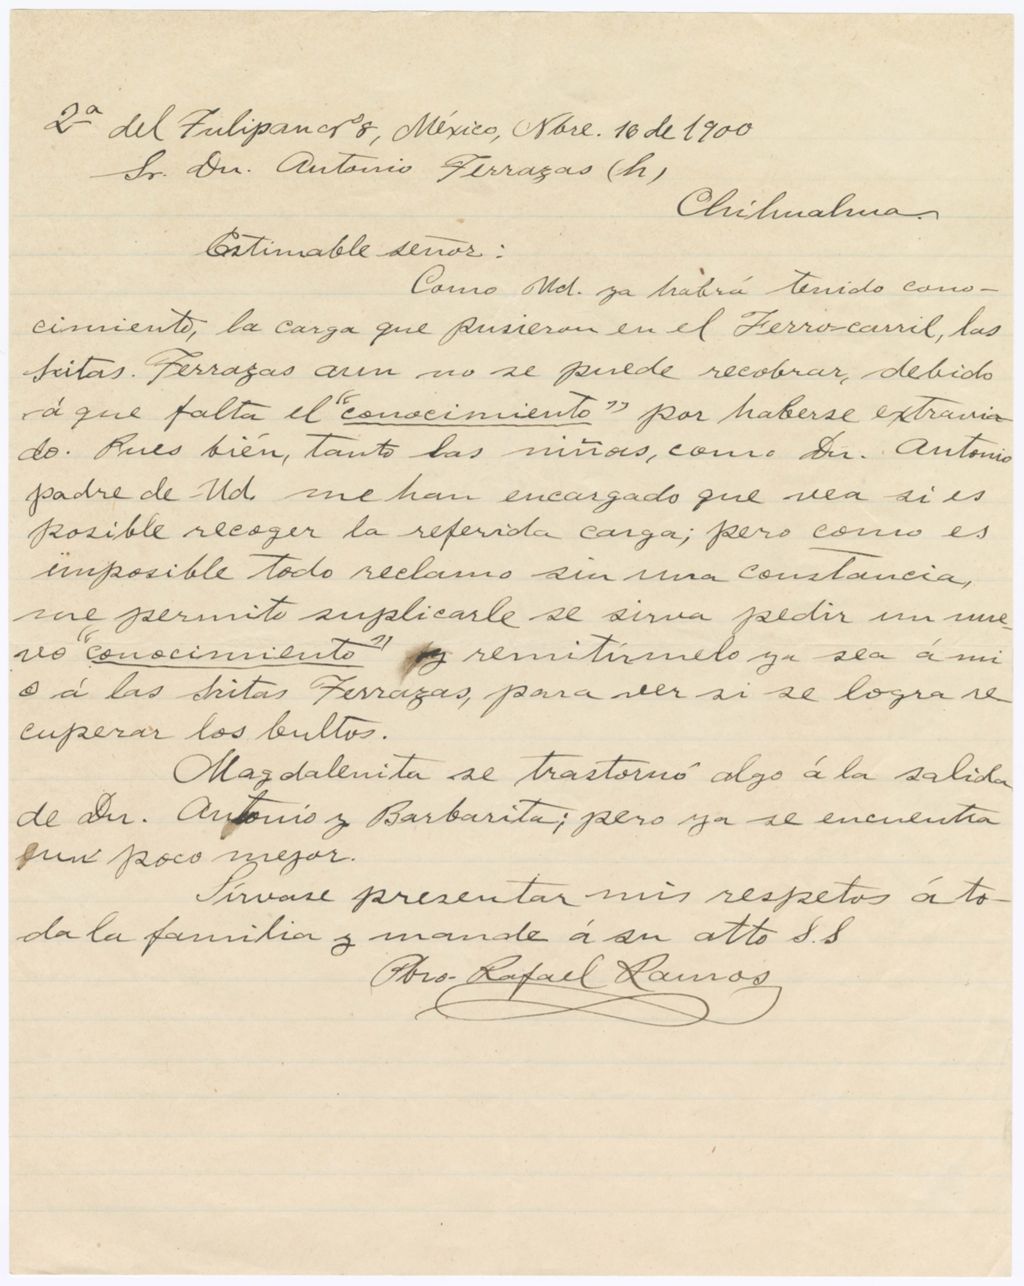 2ª del Tulipan Nº 8, México, Nbre. 16 de 1900
Sr. Dn. Antonio Terrazas (h)
Chihuahua.
Estimable señor:
Como Ud. ya habrá tenido cono-
cimiento, la carga que pusieron en el Ferro-carril, las
Sritas. Terrazas aun no se puede recobrar, debido
á que falta el "conocimiento" por haberse extravia
do. Pues bién, tanto las niñas, como Dn. Antonio
padre de Ud. me han encargado que vea si es
posible recoger la referida carga; pero como es
imposible todo reclamo sin una constancia,
me permito suplicarle se sirva pedir un nue-
vo "conocimiento" y remitírmelo ya sea á mi
o á las Sritas Terrazas, para ver si se logra re
cuperar los bultos.
Magdalenita se trastornó algo á la salida
de Dn. Antonio y Barbarita; pero ya se encuentra
un poco mejor.
Sírvase presentar mis respetos á to-
da la familia y mande á su atto S.S
Pbro. Rafael Ramos